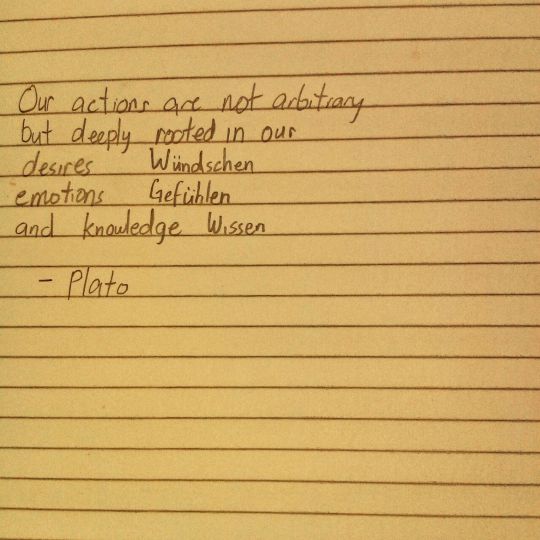 Our actions are not arbitrary
but deeply rooted in our
desires Wündschen
emotions Gefühlen
and knowledge Wissen
- Plato